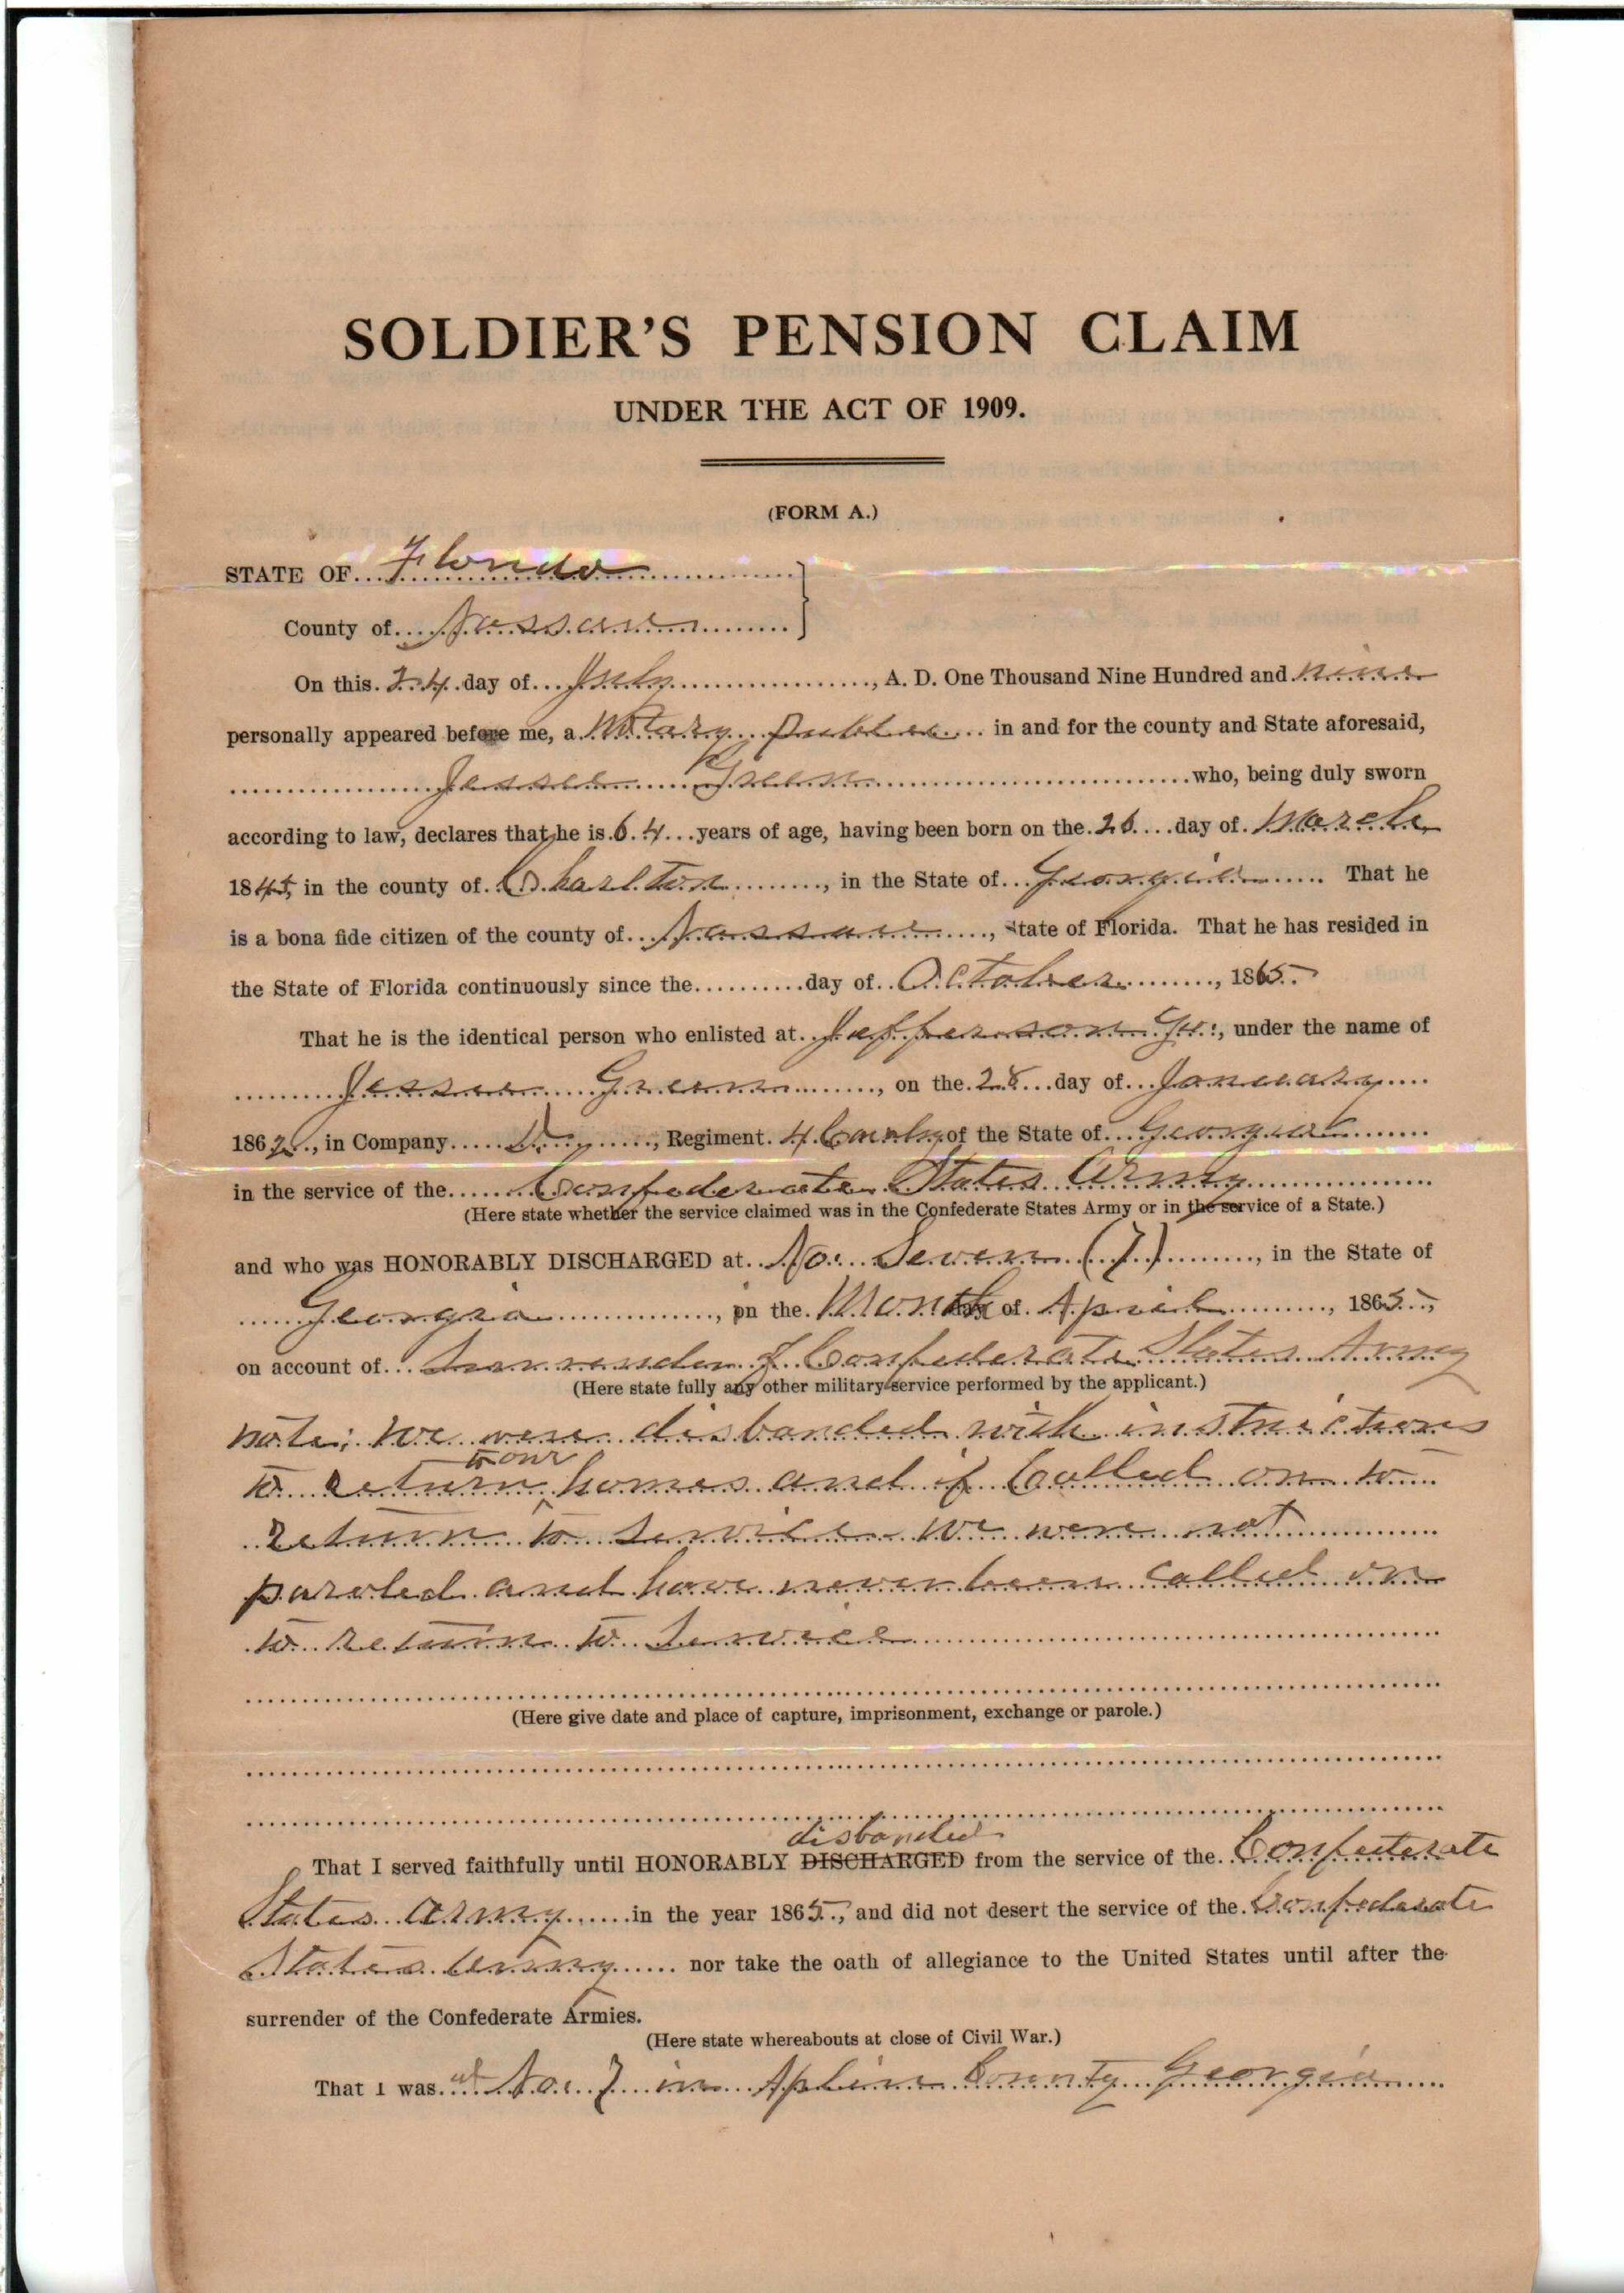 SOLDIER'S PENSION CLAIM
UNDER THE ACT OF 1909.
(FORM A.)
STATE OF Florida
County of Nassau
On this 24 day of July, A. D. One Thousand Nine Hundred and nine
personally appeared before me, a Notary Public in and for the county and State aforesaid,
Jessee Green who, being duly sworn
according to law, declares that he is 64 years of age, having been born on the 26 day of March
1845, in the county of Charlton, in the State of Georgia That he
is a bona fide citizen of the county of Nassau, State of Florida. That he has resided in
the State of Florida continuously since the day of October, 1865
That he is the identical person who enlisted at Jefferson Ga., under the name of
Jessee Green, on the 28 day of January
1862, in Company D, Regiment 4 Cavalry of the State of Georgia
in the service of the Confederate States Army
(Here state whether the service claimed was in the Confederate States Army or in the service of a State.)
and who was HONORABLY DISCHARGED at No. Seven (7), in the State of
Georgia, on the Month of April, 1865,
on account of Surrender of Confederate States Army
(Here state fully any other military service performed by the applicant.)
note; we were disbanded with instructions
to return to our homes and if Called on to
return to Service we were not
paroled and have never been called on
to return to Service
(Here give date and place of capture, imprisonment, exchange or parole.)
disbanded
That I served faithfully until HONORABLY DISCHARGED from the service of the Confederate
States Army in the year 1865, and did not desert the service of the Confederate
States Army nor take the oath of allegiance to the United States until after the
surrender of the Confederate Armies.
(Here state whereabouts at close of Civil War.)
That I was at No. 7 in Aplin County Georgia